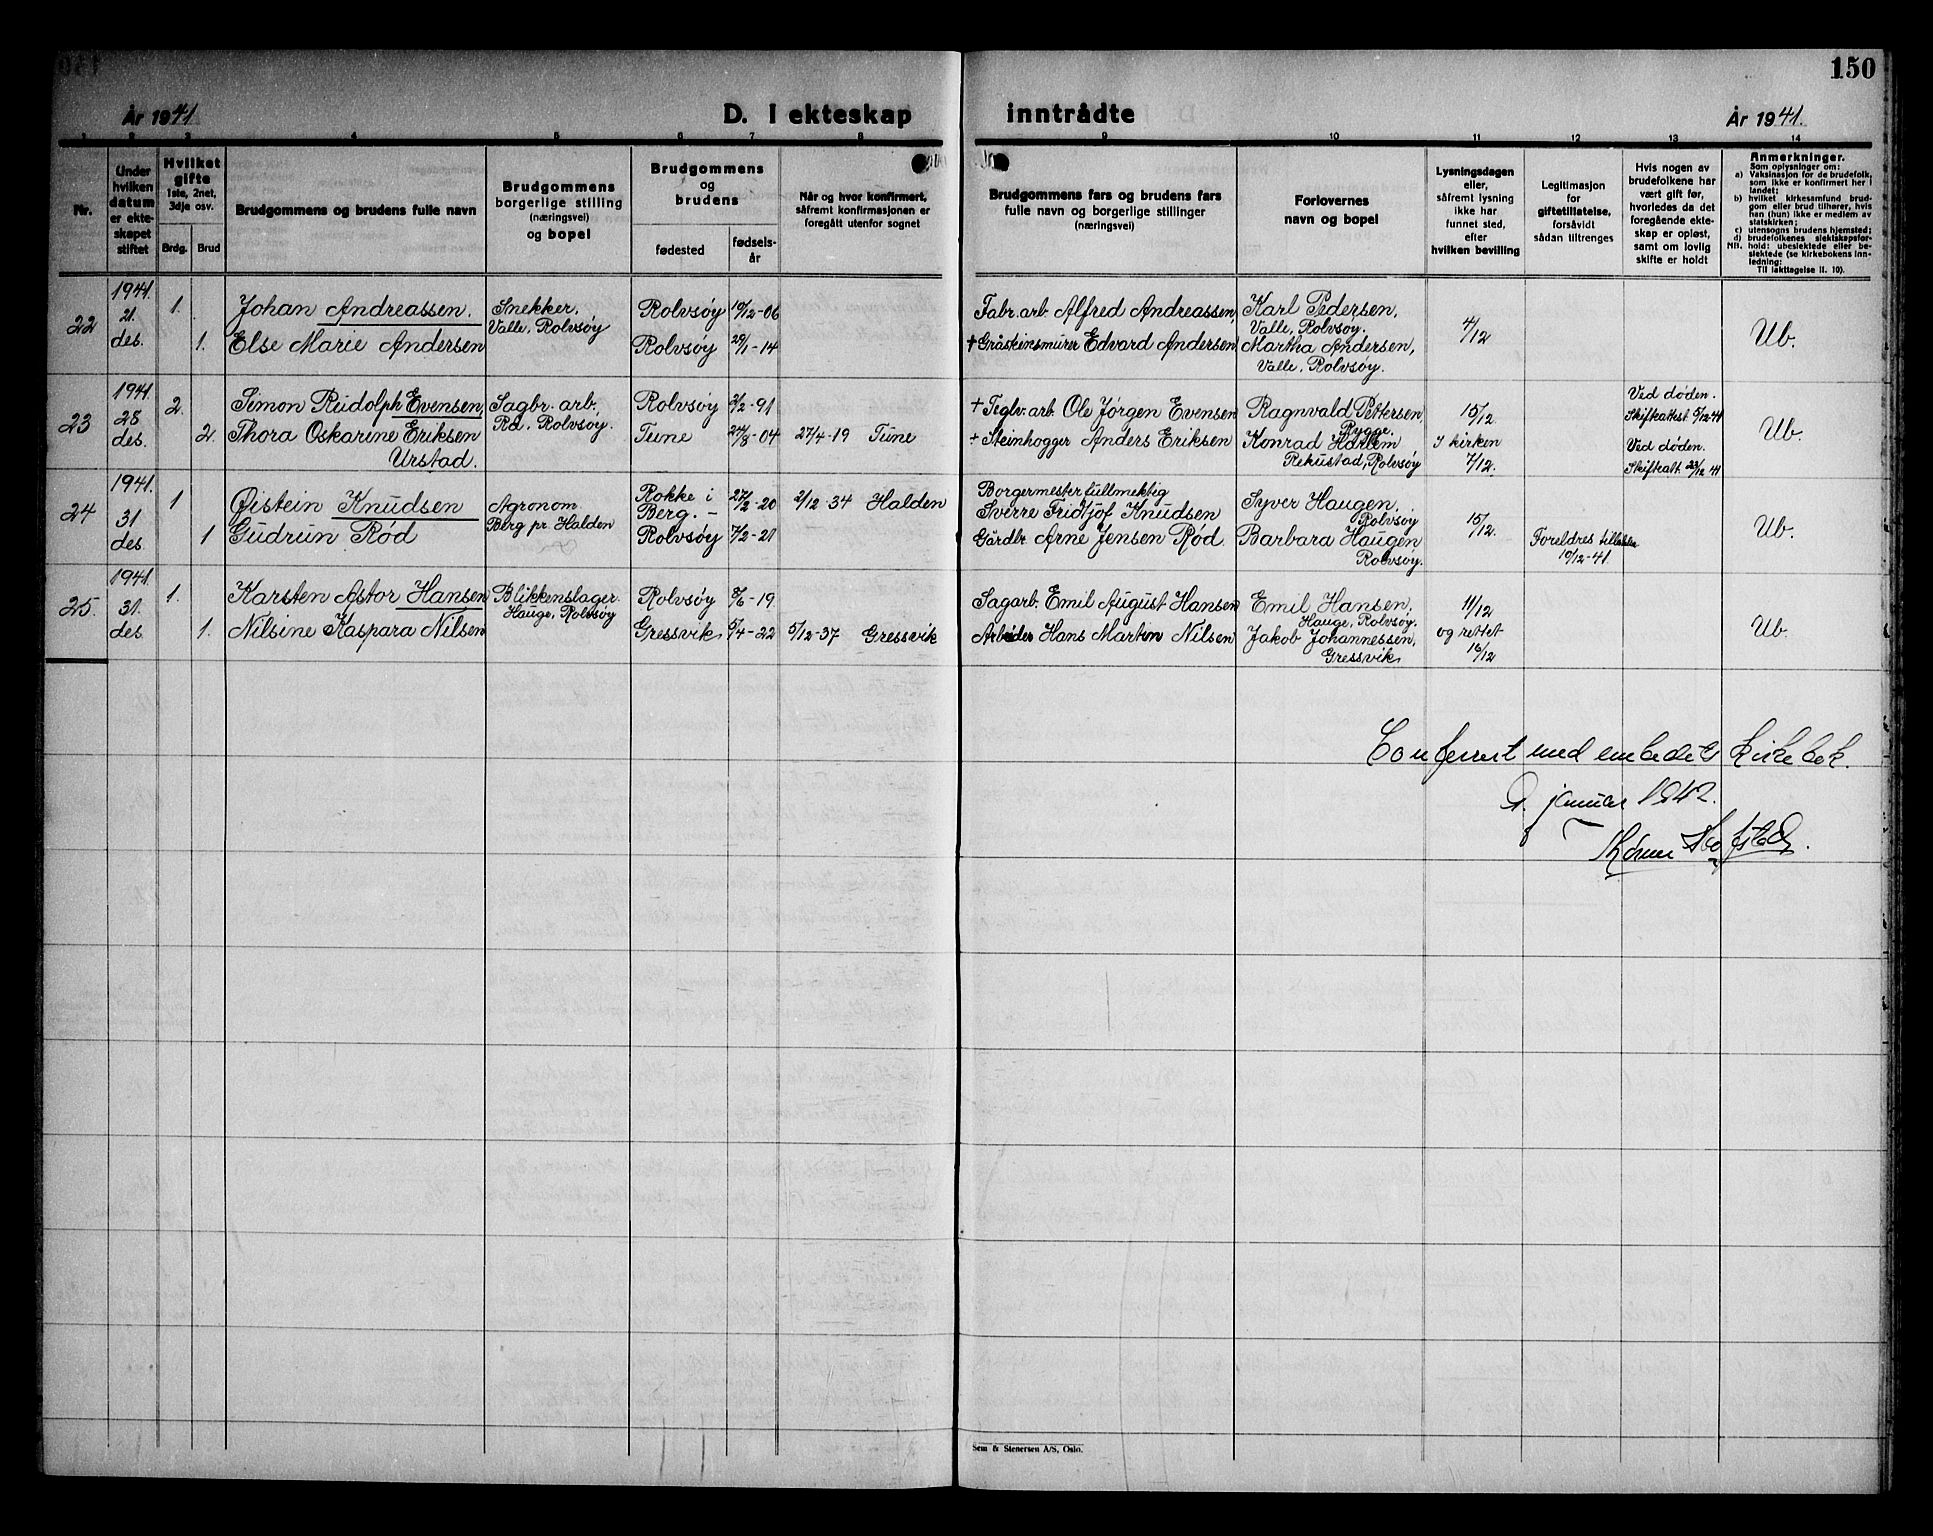 150
År 1941
D. I ekteskap inntrådte
År 1941.
1 2 3 4 5 6 7 8 9 10 11 12 13 14
Nr.
Under hvilken datum er ekteskapet stiftet
Hvilket gifte
1ste, 2net, 3dje osv.
Brdg. Brud
Brudgommens og brudens fulle navn
Brudgommens borgerlige stilling (næringsvei) og bopel
Brudgommens og brudens
fødested
fødselsår
Når og hvor konfirmert, såfremt konfirmasjonen er foregått utenfor sognet
Brudgommens fars og brudens fars fulle navn og borgerlige stillinger (næringsvei)
Forlovernes navn og bopel
Lysningsdagen eller, såfremt lysning ikke har funnet sted, efter hvilken bevilling
Legitimasjon for giftetillatelse, forsåvidt sådan tiltrenges
Hvis nogen av brudefolkene har vært gift før, hvorledes da det foregående ekteskap er opløst, samt om lovlig skifte er holdt
Anmerkninger.
Som oplysninger om:
a) Vaksinasjon for de brudefolk, som ikke er konfirmert her i landet;
b) hvilket kirkesamfund brudgom eller brud tilhører, hvis han (hun) ikke er medlem av statskirken;
c) utensogns brudens hjemsted;
d) brudefolkenes slektskapsforhold: ubeslektede eller beslektede (se kirkebokens innledning: Til iakttagelse II. 10).
NB.
22
1941.
21.
des.
1.
Johan Andreassen.
Snekker,
Valle, Rolvsøy
Rolvsøy 19/12-06
Fabr. arb. Alfred Andreassen,
Karl Pedersen,
Valle, Rolvsøy.
4/12
Ub.
1.
Else Marie Andersen
Rolvsøy 29/1-14
+ Gråsteinsmurer Edvard Andersen
Martha Andersen,
Valle, Rolvsøy.
23
1941.
28
des.
2.
Simon Rudolph Evensen,
Sagbr. arb.,
Rd. Rolvsøy.
Rolvsøy 2/2-91
+ Teglv. arb. Ole Jørgen Evensen
Ragnvald Pettersen,
Rygge.
15/12
Ved døden.
Skifteattest 5/12-41
Ub.
2.
Thora Oskarine Eriksen
Urstad.
Tune 24/8-04 27/4-19 Tune
+ Steinhogger Anders Eriksen
Konrad Harlem
Rekustad, Rolvsøy
I kirken
7/12.
Ved døden.
Skifteatt 23/12 41
24
1941.
31
des
1
Øistein Knudsen
Agronom
Berg pr. Halden
Rokke i
Berg. - 27/2-20 2/12-34 Halden
Borgermesterfullmektig
Sverre Fridtjof Knudsen
Syver Haugen,
Rolvsøy
15/12.
Ub.
1
Gudrun Rød
Rolvsøy 7/2-21
Gårdbr Arne Jensen Rød.
Barbara Haugen
Rolvsøy.
Foreldres tillatelse
10/12-41.
25.
1941.
31.
des
1.
Karsten Astor Hansen
Blikkenslager.
Hauge, Rolvsøy
Rolvsøy 8/6-19
Sagarb. Emil August Hansen
Emil Hansen,
Hauge, Rolvsøy.
11/12
og rettet
16/12
Ub.
1.
Nilsine Kaspara Nilsen
Gressvik 5/4-22 5/12-37 Gressvik
Arbeider Hans Martin Nilsen
Jakob Johannessen,
Gressvik
Conferert med embedets kirkebok.
januar 1942.
Sem & Stenersen A/S, Oslo.